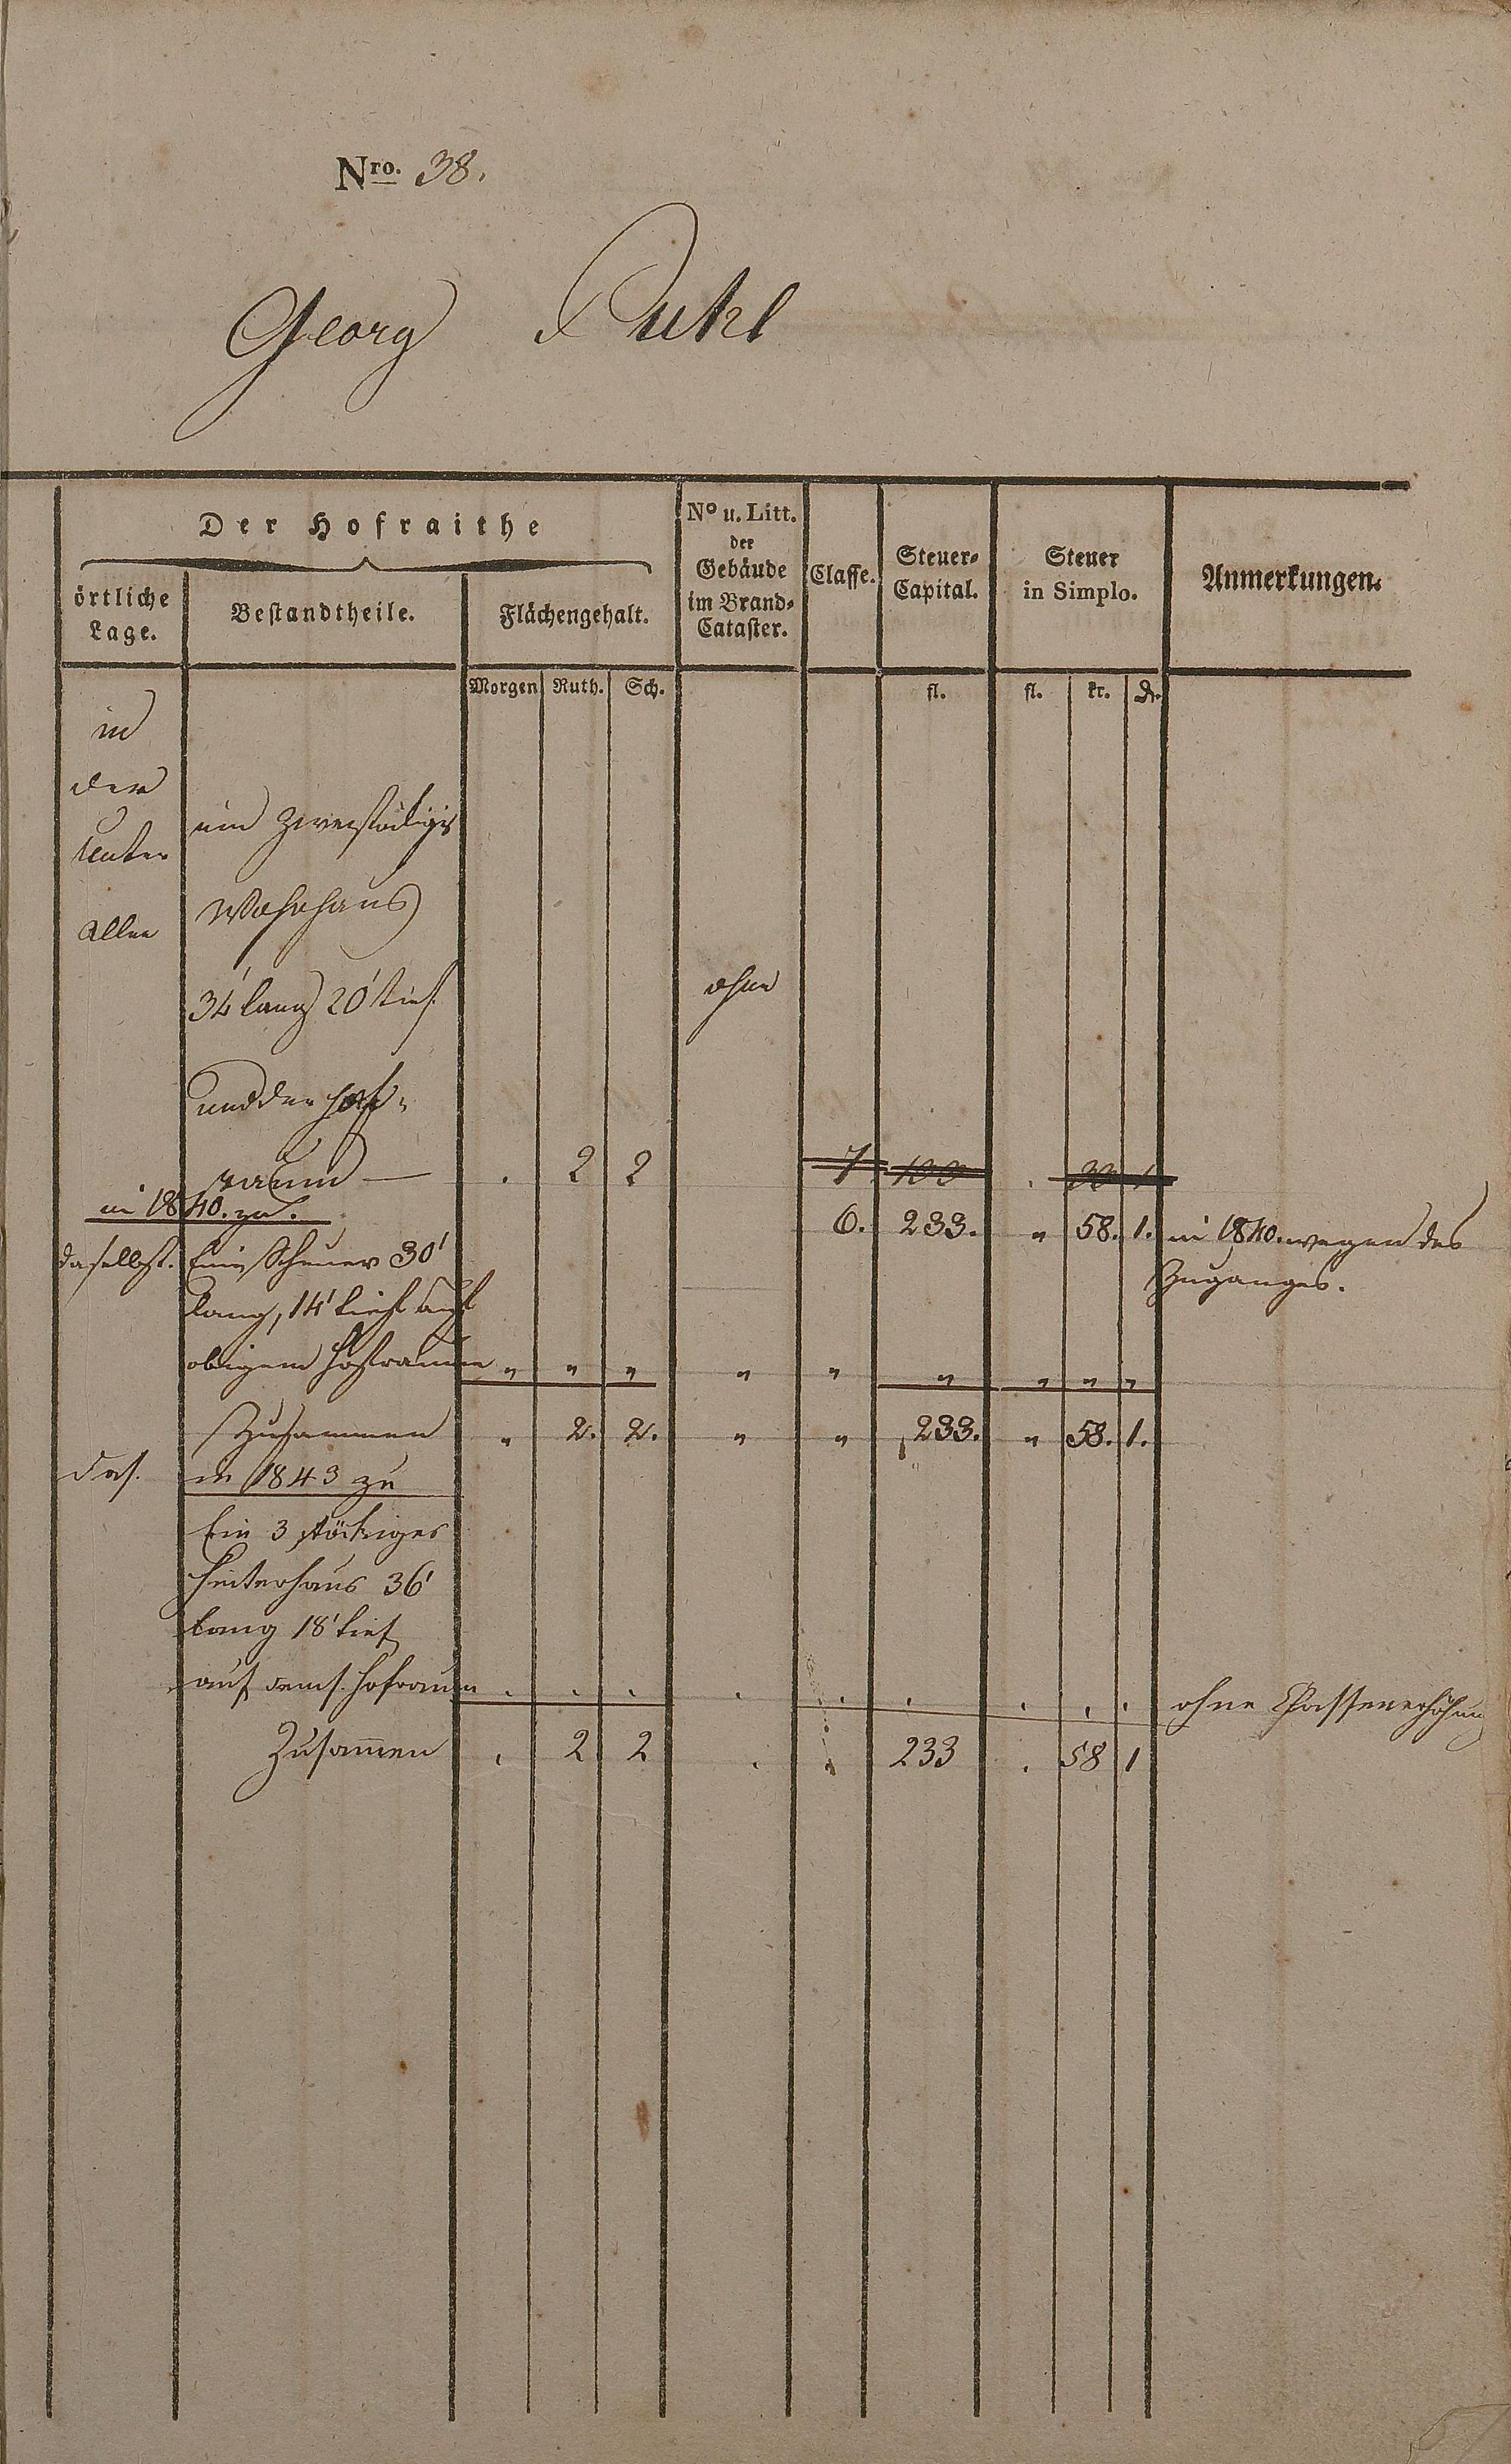 Nro. 38.
Georg Puhl
Der Hofraithe
örtliche Lage.
Bestandtheile.
Flächengehalt.
No u. Litt. der Gebäude im Brand-Cataster.
Classe.
Steuer-Capital.
Steuer in Simplo.
Anmerkungen.
Morgen Ruth. Sch. fl. fl. kr.
in
der
unter
Allee
ein zweistöckiges
Wohnhaus
34' lang 20' tief
ohne
und der Hof-
raum — . 2 2 7 . 1
in 1840. zu.
6. 233. " 58. 1. in 1840. wegen des
Zuganges.
daselbst. Eine Scheuer 30'
lang, 14' tief auf
obigem Hofraume " " " " " " " " "
Zusammen " 2. 2. " " 233. " 58. 1.
das. in 1843 zu
Ein 3 stöckiges
Hinterhaus 36'
lang 18' tief
auf dems. Hofraum . . . . . . . . . ohne Classenerhöhung
Zusammen . 2 2 . . 233 . 58 1